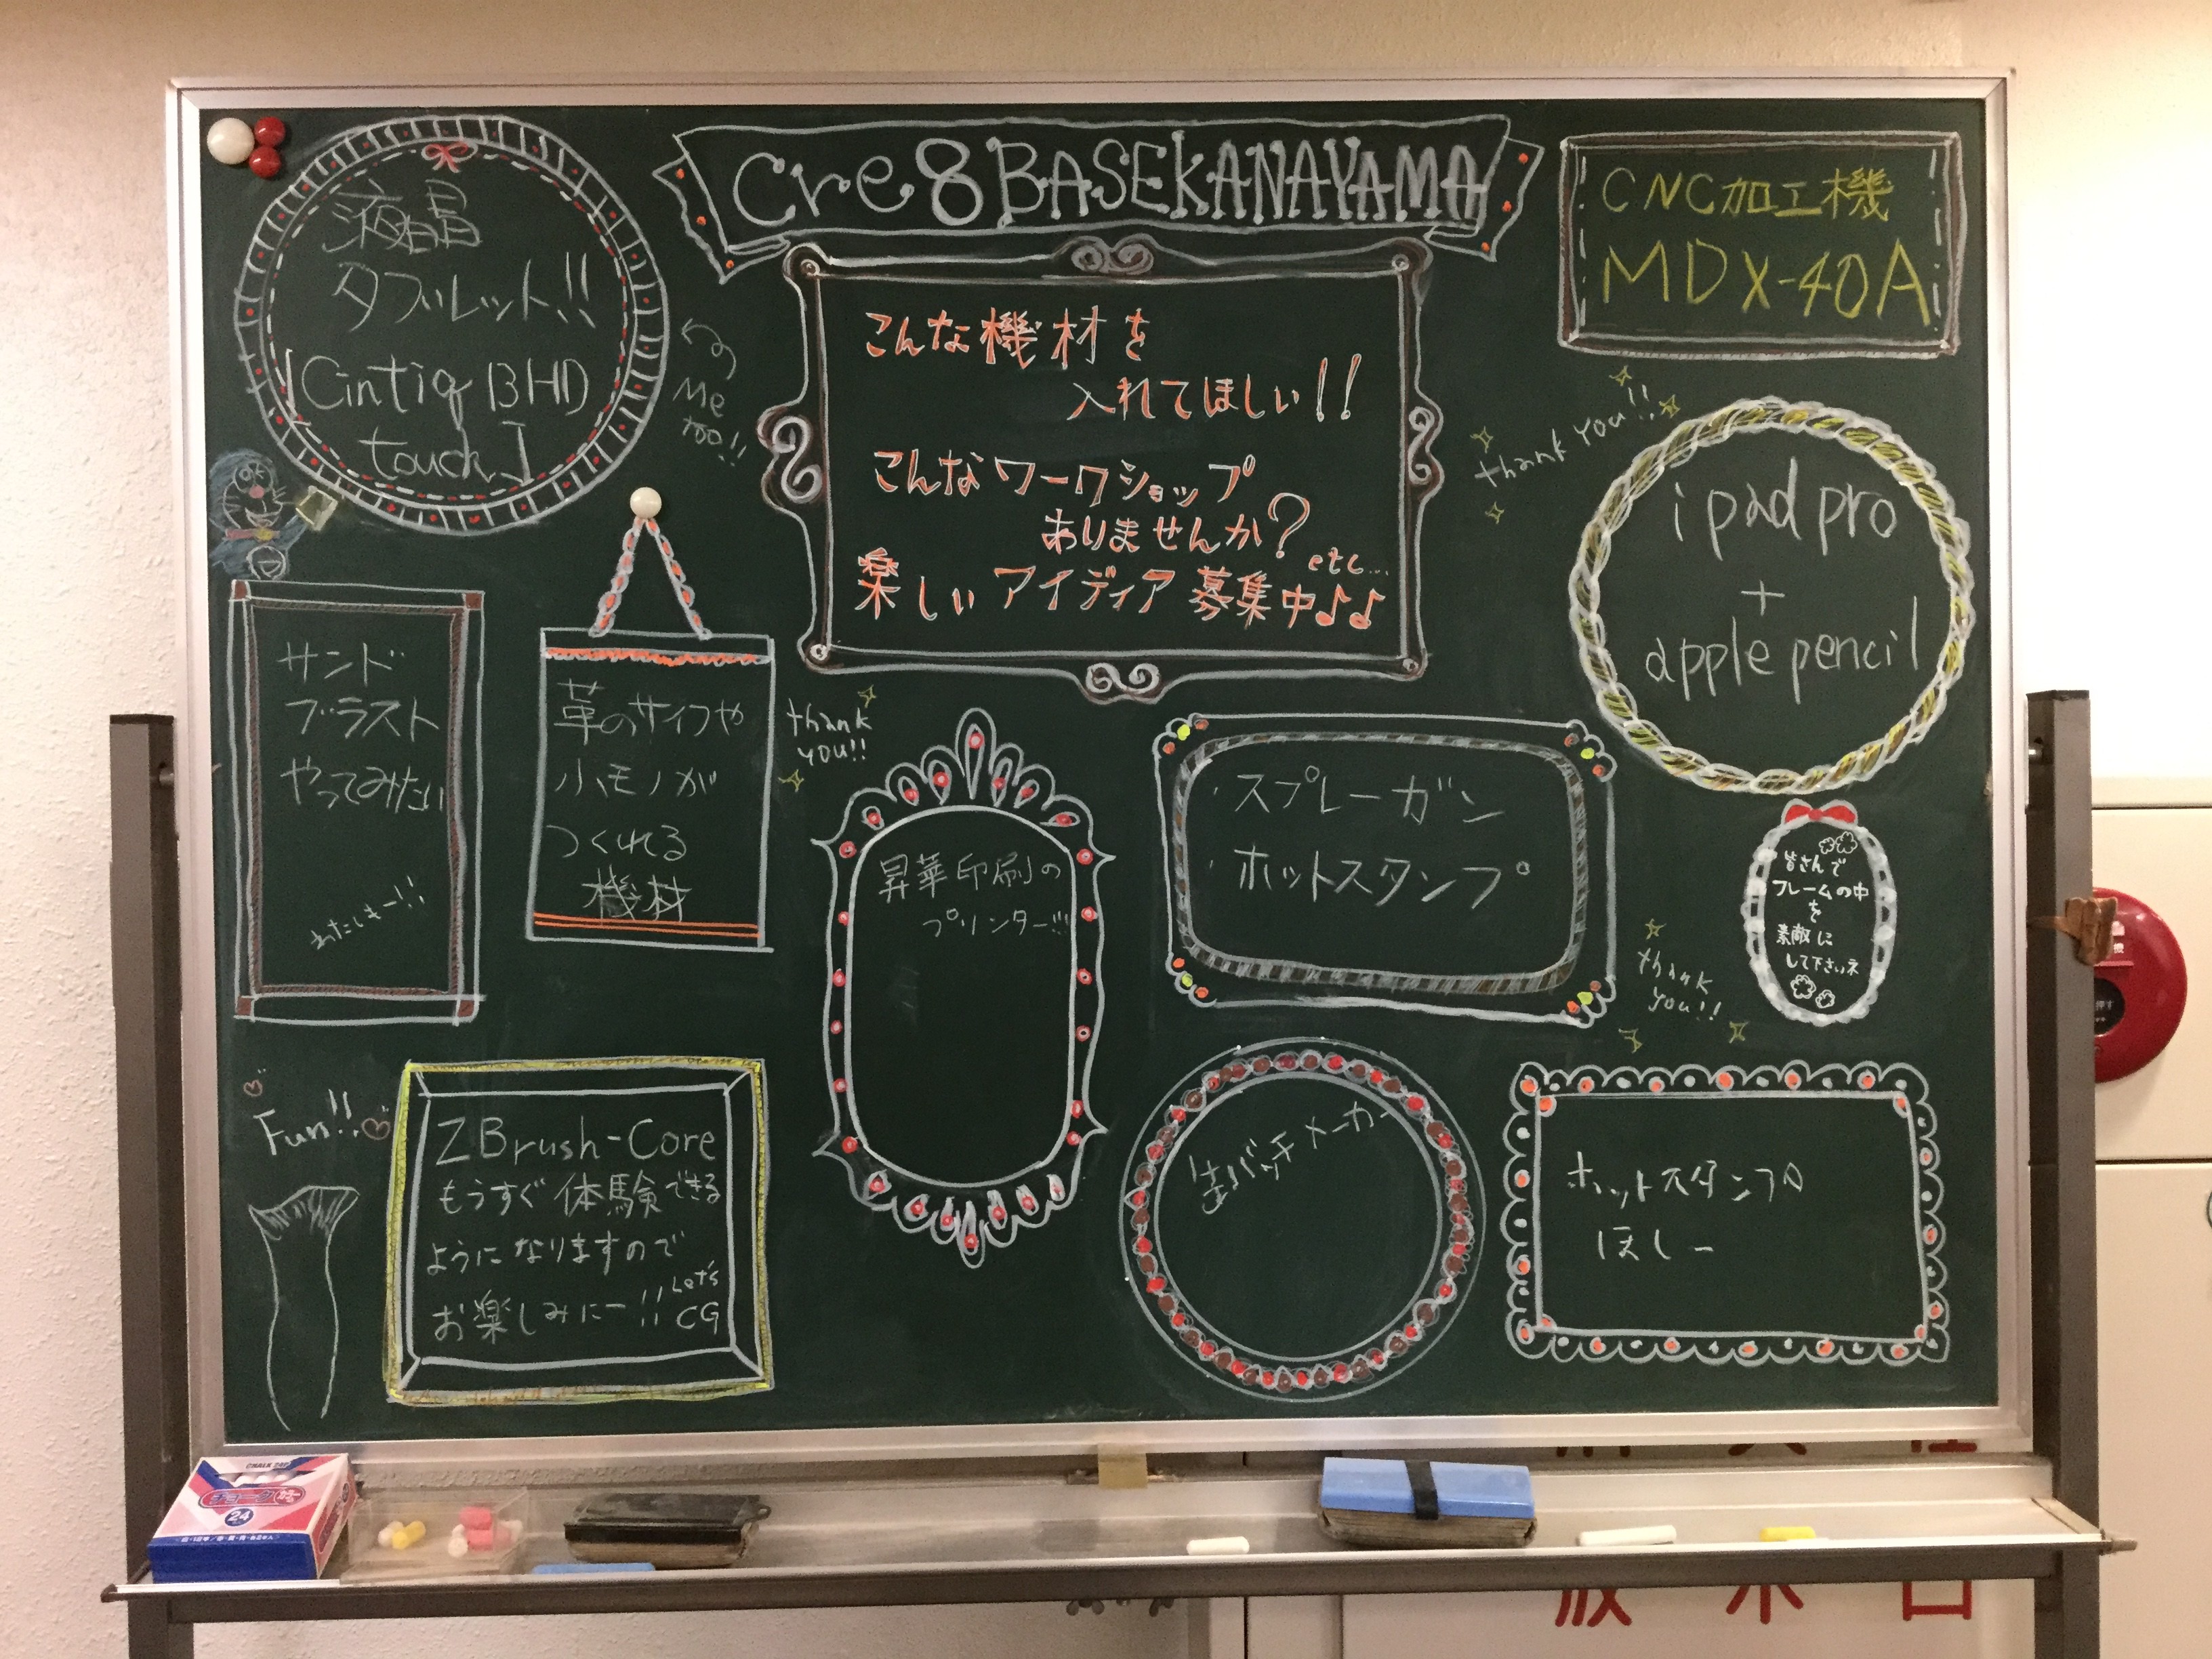 Cre8BASEKANAYAMA
液晶
タブレット!!
[Cintiq 13HD
touch]
Me
too!!
こんな機材を
入れてほしい!!
こんなワークショップ
ありませんか?
etc...
楽しいアイディア募集中♪♪
CNC加工機
MDX-40A
thank you!!
ipad pro
+
apple pencil
サンド
ブラスト
やってみたい
わたしもー!!
革のサイフや
小モノが
つくれる
機材
thank
you!!
昇華印刷の
プリンター!!!
・スプレーガン
・ホットスタンプ
皆さんで
フレームの中
を
素敵に
して下さいネ
thank
you!!
Fun!!
ZBrush-Core
もうすぐ体験できる
ようになりますので
お楽しみにー!!
Let's
CG
缶バッチメーカー
ホットスタンプ
ほしー
CHALK 24P
チョーク
カラー
24